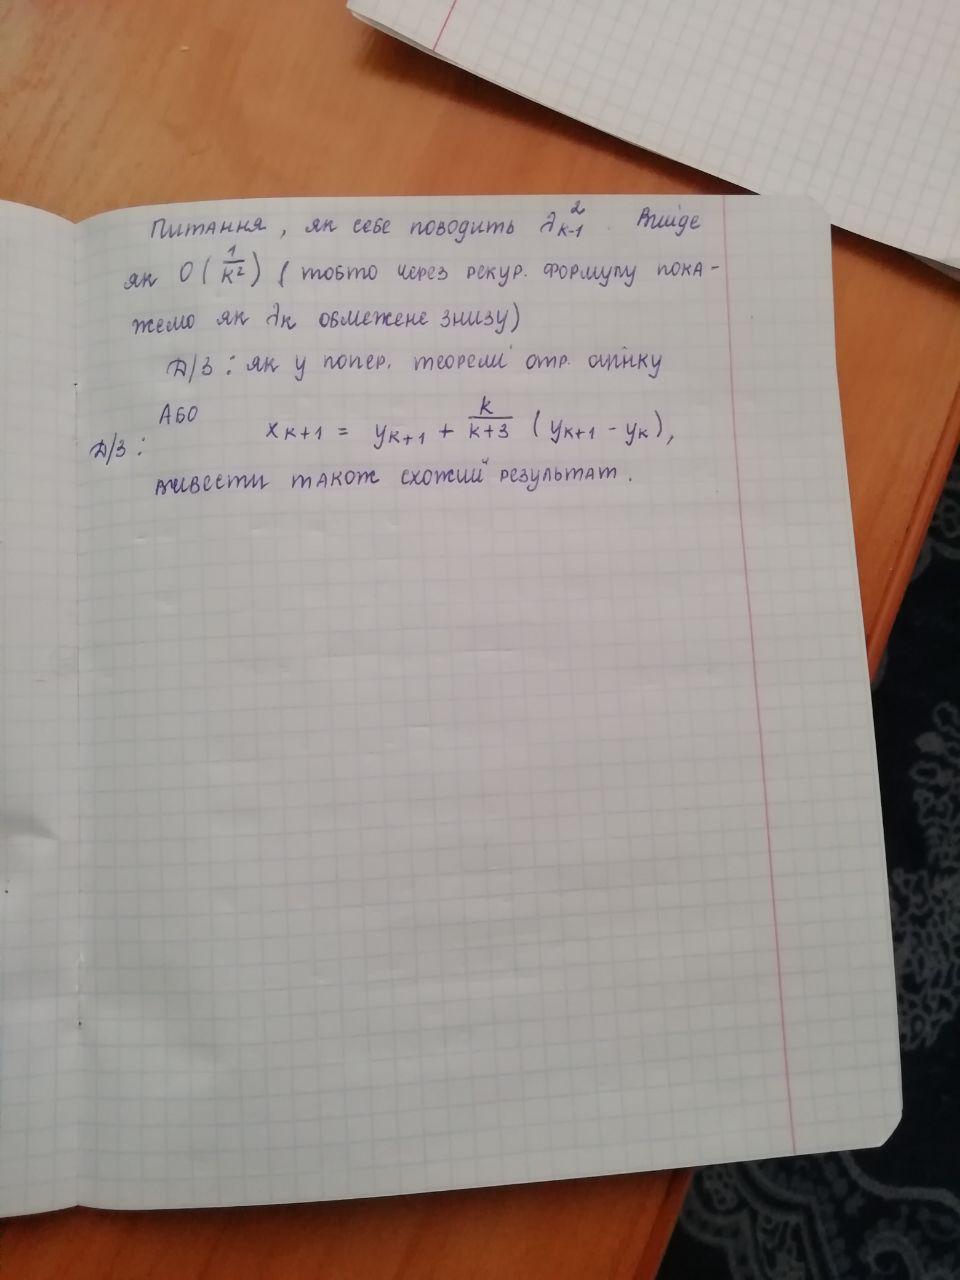 Питання, як себе поводить λ²ₖ₋₁. Вийде
як O(1/k²) (тобто через рекур. формулу пока-
жемо як λₖ обмежене знизу)
Д/З: як у попер. теоремі отр. оцінку
АБО
Д/З: xₖ₊₁ = yₖ₊₁ + k/(k+3) (yₖ₊₁ - yₖ),
вивести також схожий результат.